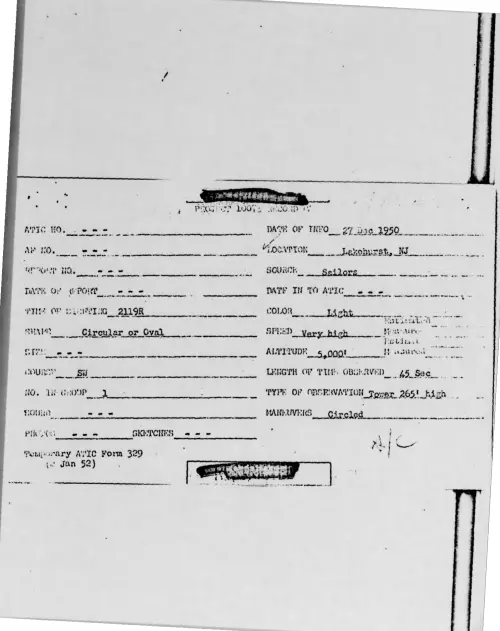 PROJECT 10073 RECORD
ATIC NO. - - -
DATE OF INFO 27 Dec 1950
AF NO. - - -
LOCATION Lakehurst, NJ
REPORT NO. - - -
SOURCE Sailors
DATE OF REPORT - - -
DATE IN TO ATIC - - -
TIME OF SIGHTING 2119R
COLOR Light
SHAPE Circular or Oval
SPEED Very high
SIZE - - -
ALTITUDE 5,000'
Measured
COURSE SW
LENGTH OF TIME OBSERVED 45 Sec
NO. IN GROUP 1
TYPE OF OBSERVATION Tower 265' high
SOUND - - -
MANEUVERS Circled
PHOTOS - - - SKETCHES - - -
A/C
Temporary ATIC Form 329
Jan 52)